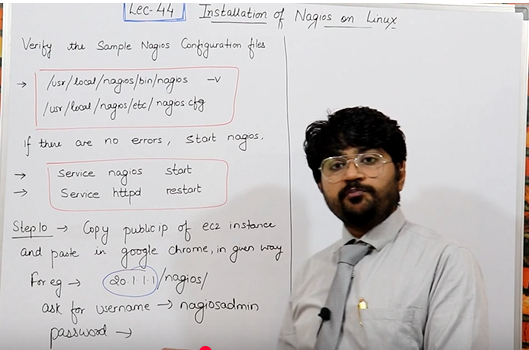 Lec-44 Installation of Nagios on Linux
Verify the Sample Nagios Configuration files
→ /usr/local/nagios/bin/nagios -v
/usr/local/nagios/etc/nagios.cfg
if there are no errors, start nagios.
→ Service nagios start
→ Service httpd restart
Step10 → Copy public ip of ec2 instance
and paste in google chrome, in given way
For eg → 20.1.1.1 /nagios/
ask for username → nagiosadmin
password →